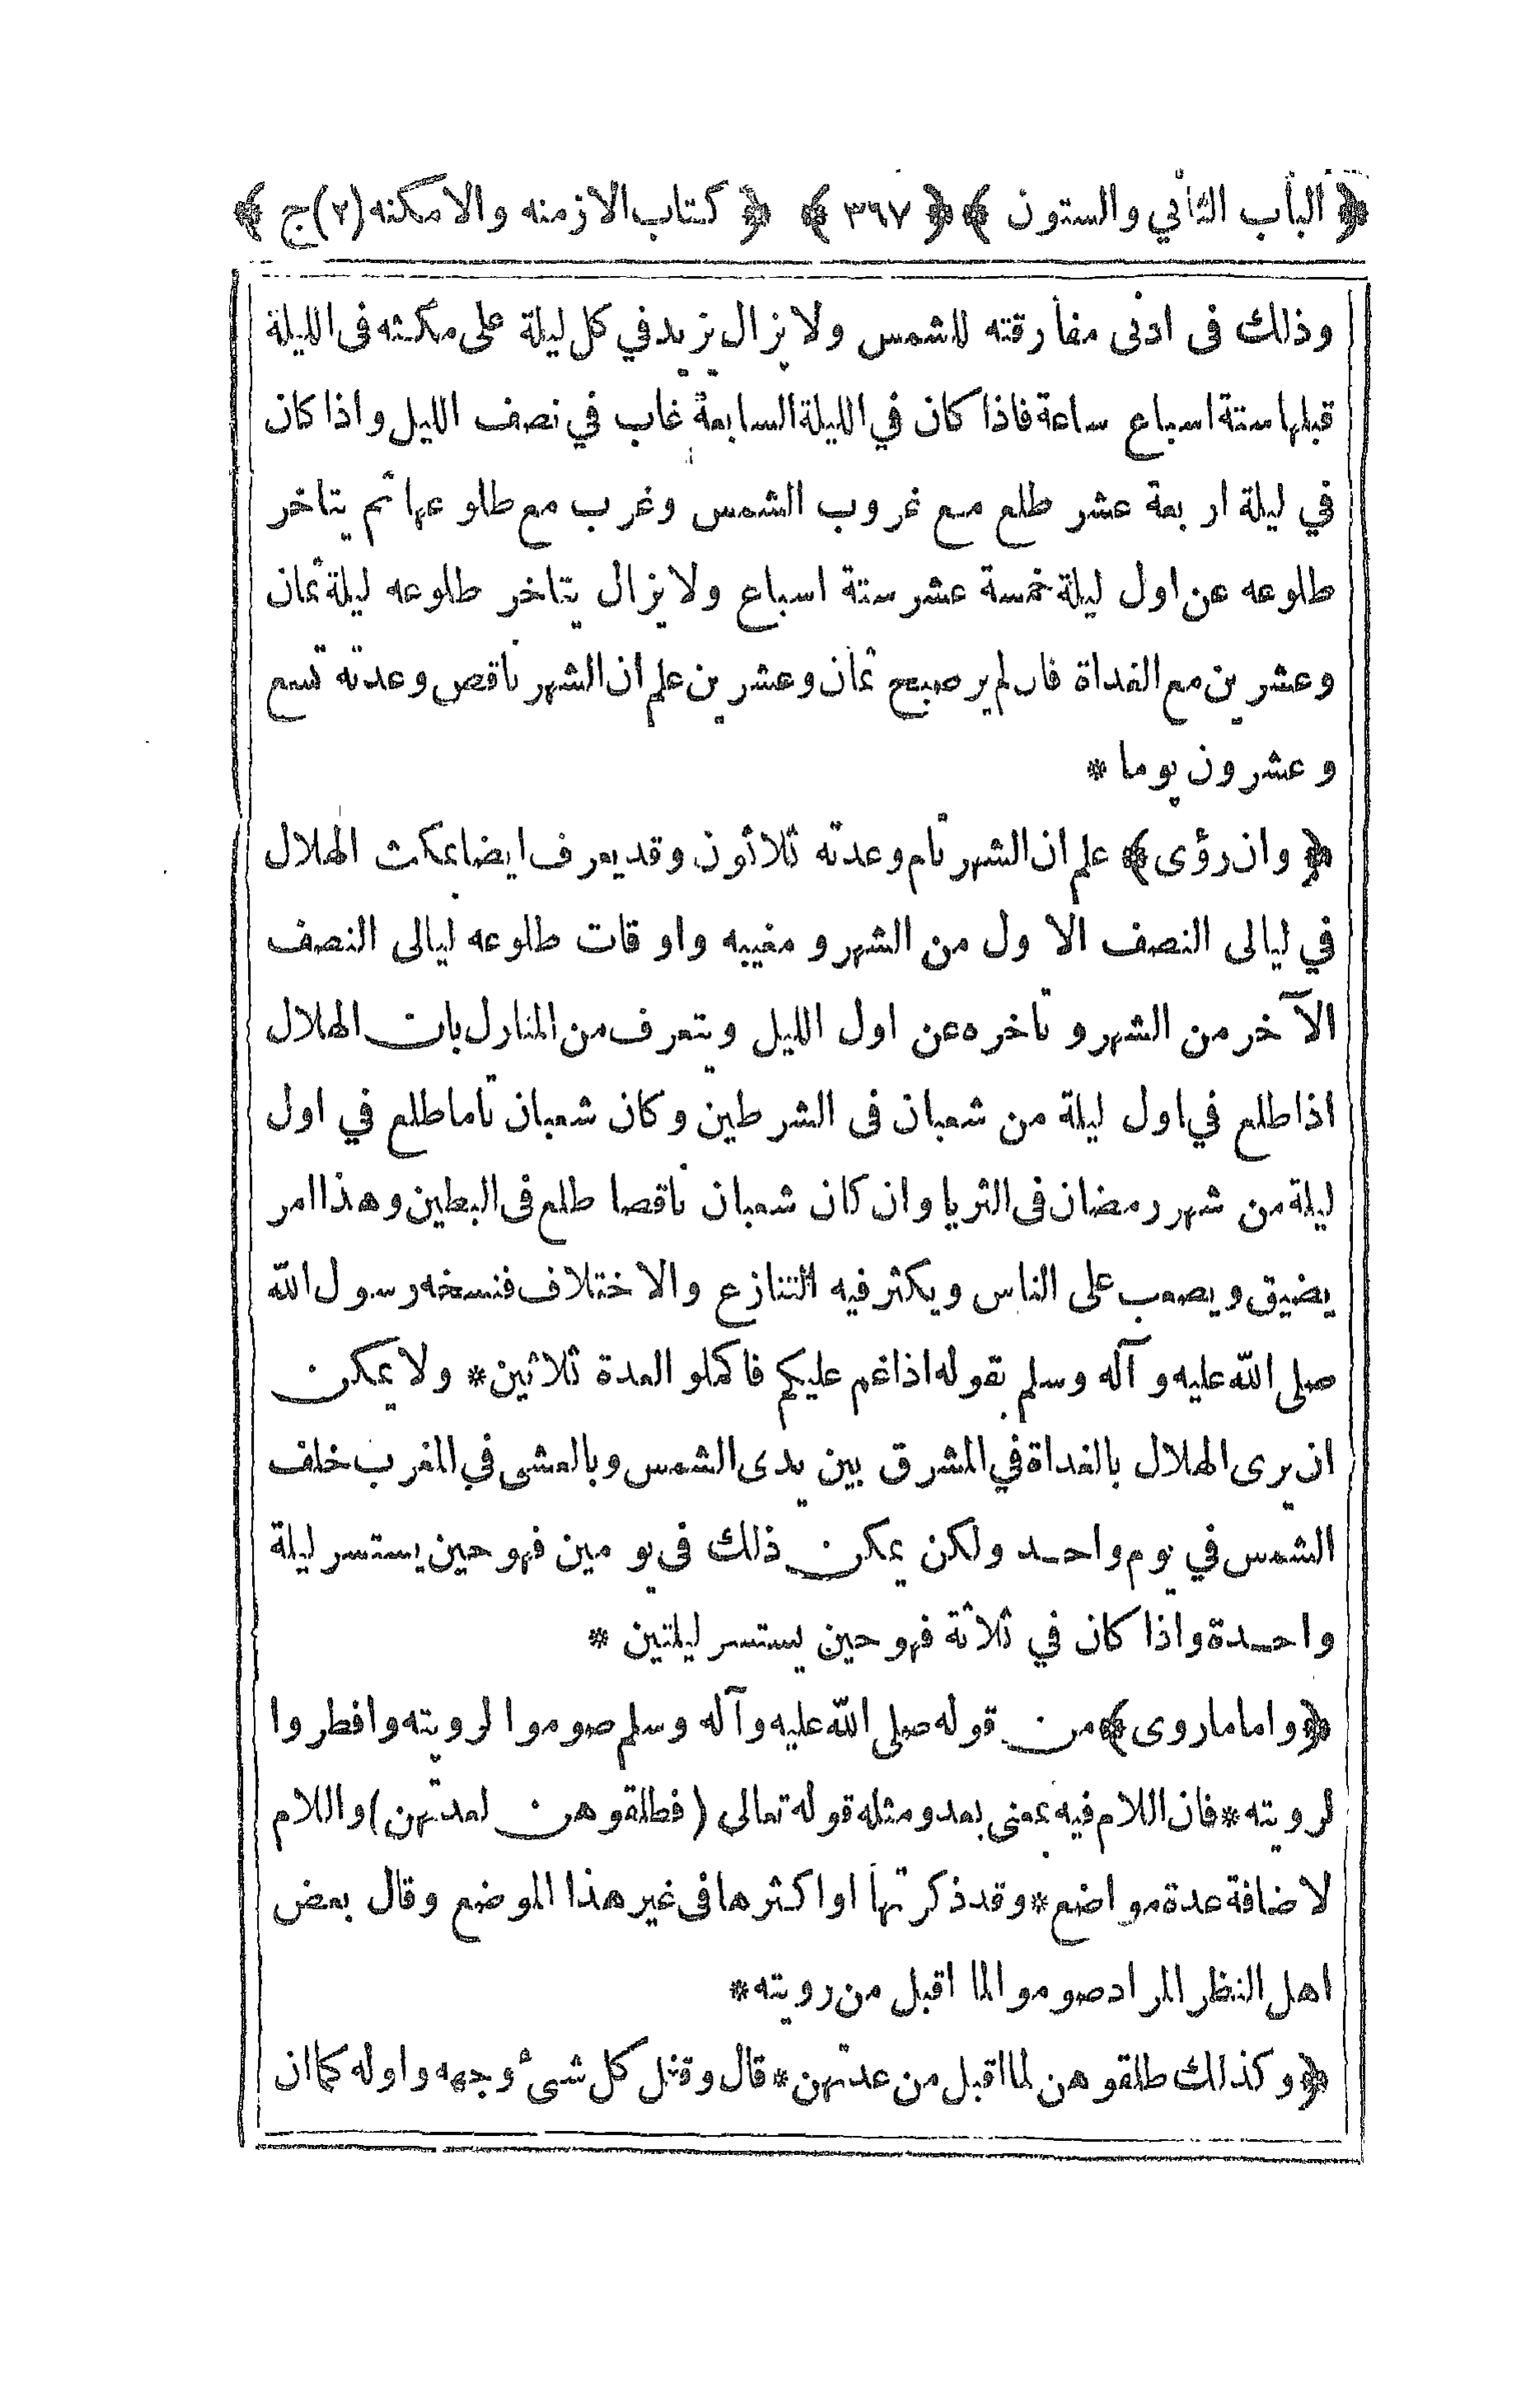 ﴿ الباب الثاني والستون ﴾ ﴿ ٣٩٧ ﴾ ﴿ كتاب الازمنه والامكنه (٢) ج ﴾
وذلك فى ادنى مفارقته للشمس ولا يزال يزيد في كل ليلة على مكثه فى الليلة
قبلها ستة اسباع ساعة فاذا كان في الليلة السابعة غاب في نصف الليل واذا كان
في ليلة اربعة عشر طلع مع غروب الشمس وغرب مع طلوعها ثم يتاخر
طلوعه عن اول ليلة خمسة عشر ستة اسباع ولا يزال يتاخر طلوعه ليلة ثمان
وعشرين مع الغداة فان لم ير صبح ثمان وعشرين علم ان الشهر ناقص وعدته تسع
وعشرون يوما *
﴿ وان رؤى ﴾ علم ان الشهر تام وعدته ثلاثون وقد يعرف ايضا بمكث الهلال
في ليالى النصف الاول من الشهر ومغيبه واوقات طلوعه ليالى النصف
الآخر من الشهر وتاخره عن اول الليل ويتعرف من المنازل بان الهلال
اذا طلع في اول ليلة من شعبان فى الشرطين وكان شعبان تاما طلع في اول
ليلة من شهر رمضان فى الثريا وان كان شعبان ناقصا طلع فى البطين وهذا امر
يضيق ويصعب على الناس ويكثر فيه التنازع والاختلاف فنسخه رسول الله
صلى الله عليه وآله وسلم بقوله اذا غم عليكم فاكملو العدة ثلاثين * ولا يمكن
ان يرى الهلال بالغداة في المشرق بين يدى الشمس وبالعشى في المغرب خلف
الشمس في يوم واحد ولكن يمكن ذلك فى يومين فهو حين يستسر ليلة
واحدة واذا كان في ثلاثة فهو حين يستسر ليلتين *
﴿ واما ماروى ﴾ من قوله صلى الله عليه وآله وسلم صوموا لرويته وافطروا
لرويته * فان اللام فيه بمعنى بعد ومثله قوله تعالى (فطلقوهن لعدتهن) واللام
لاضافة عدة مواضع * وقد ذكرتها او اكثرها فى غير هذا الموضع وقال بعض
اهل النظر المراد صوموا لما اقبل من رويته *
﴿ وكذلك طلقوهن لما اقبل من عدتهن * قال وقبل كل شئ وجهه واوله كما ان